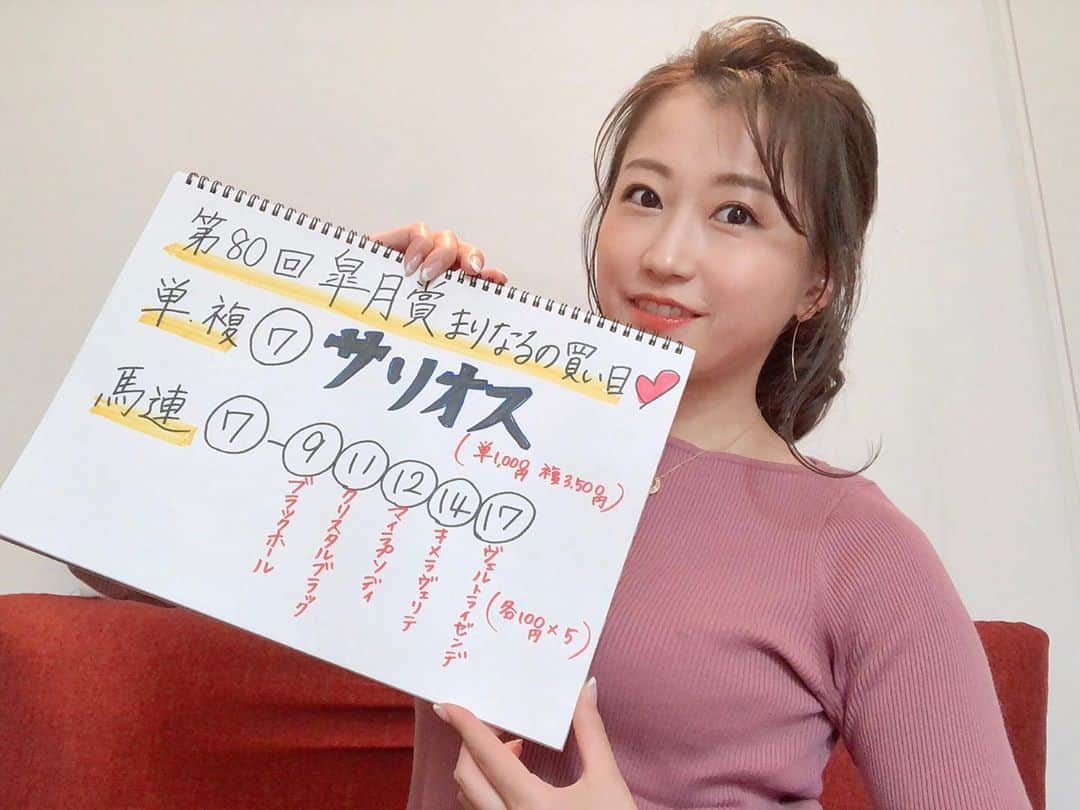 第80回 皐月賞 まりなるの買い目
単.複 ⑦ サリオス
(単1,000円 複3.500円)
馬連 ⑦-⑨⑪⑫⑭⑰
ブラックホール
クリスタルブラック
マイラプソディ
キメラヴェリテ
ヴェルトライゼンデ
(各100円×5)